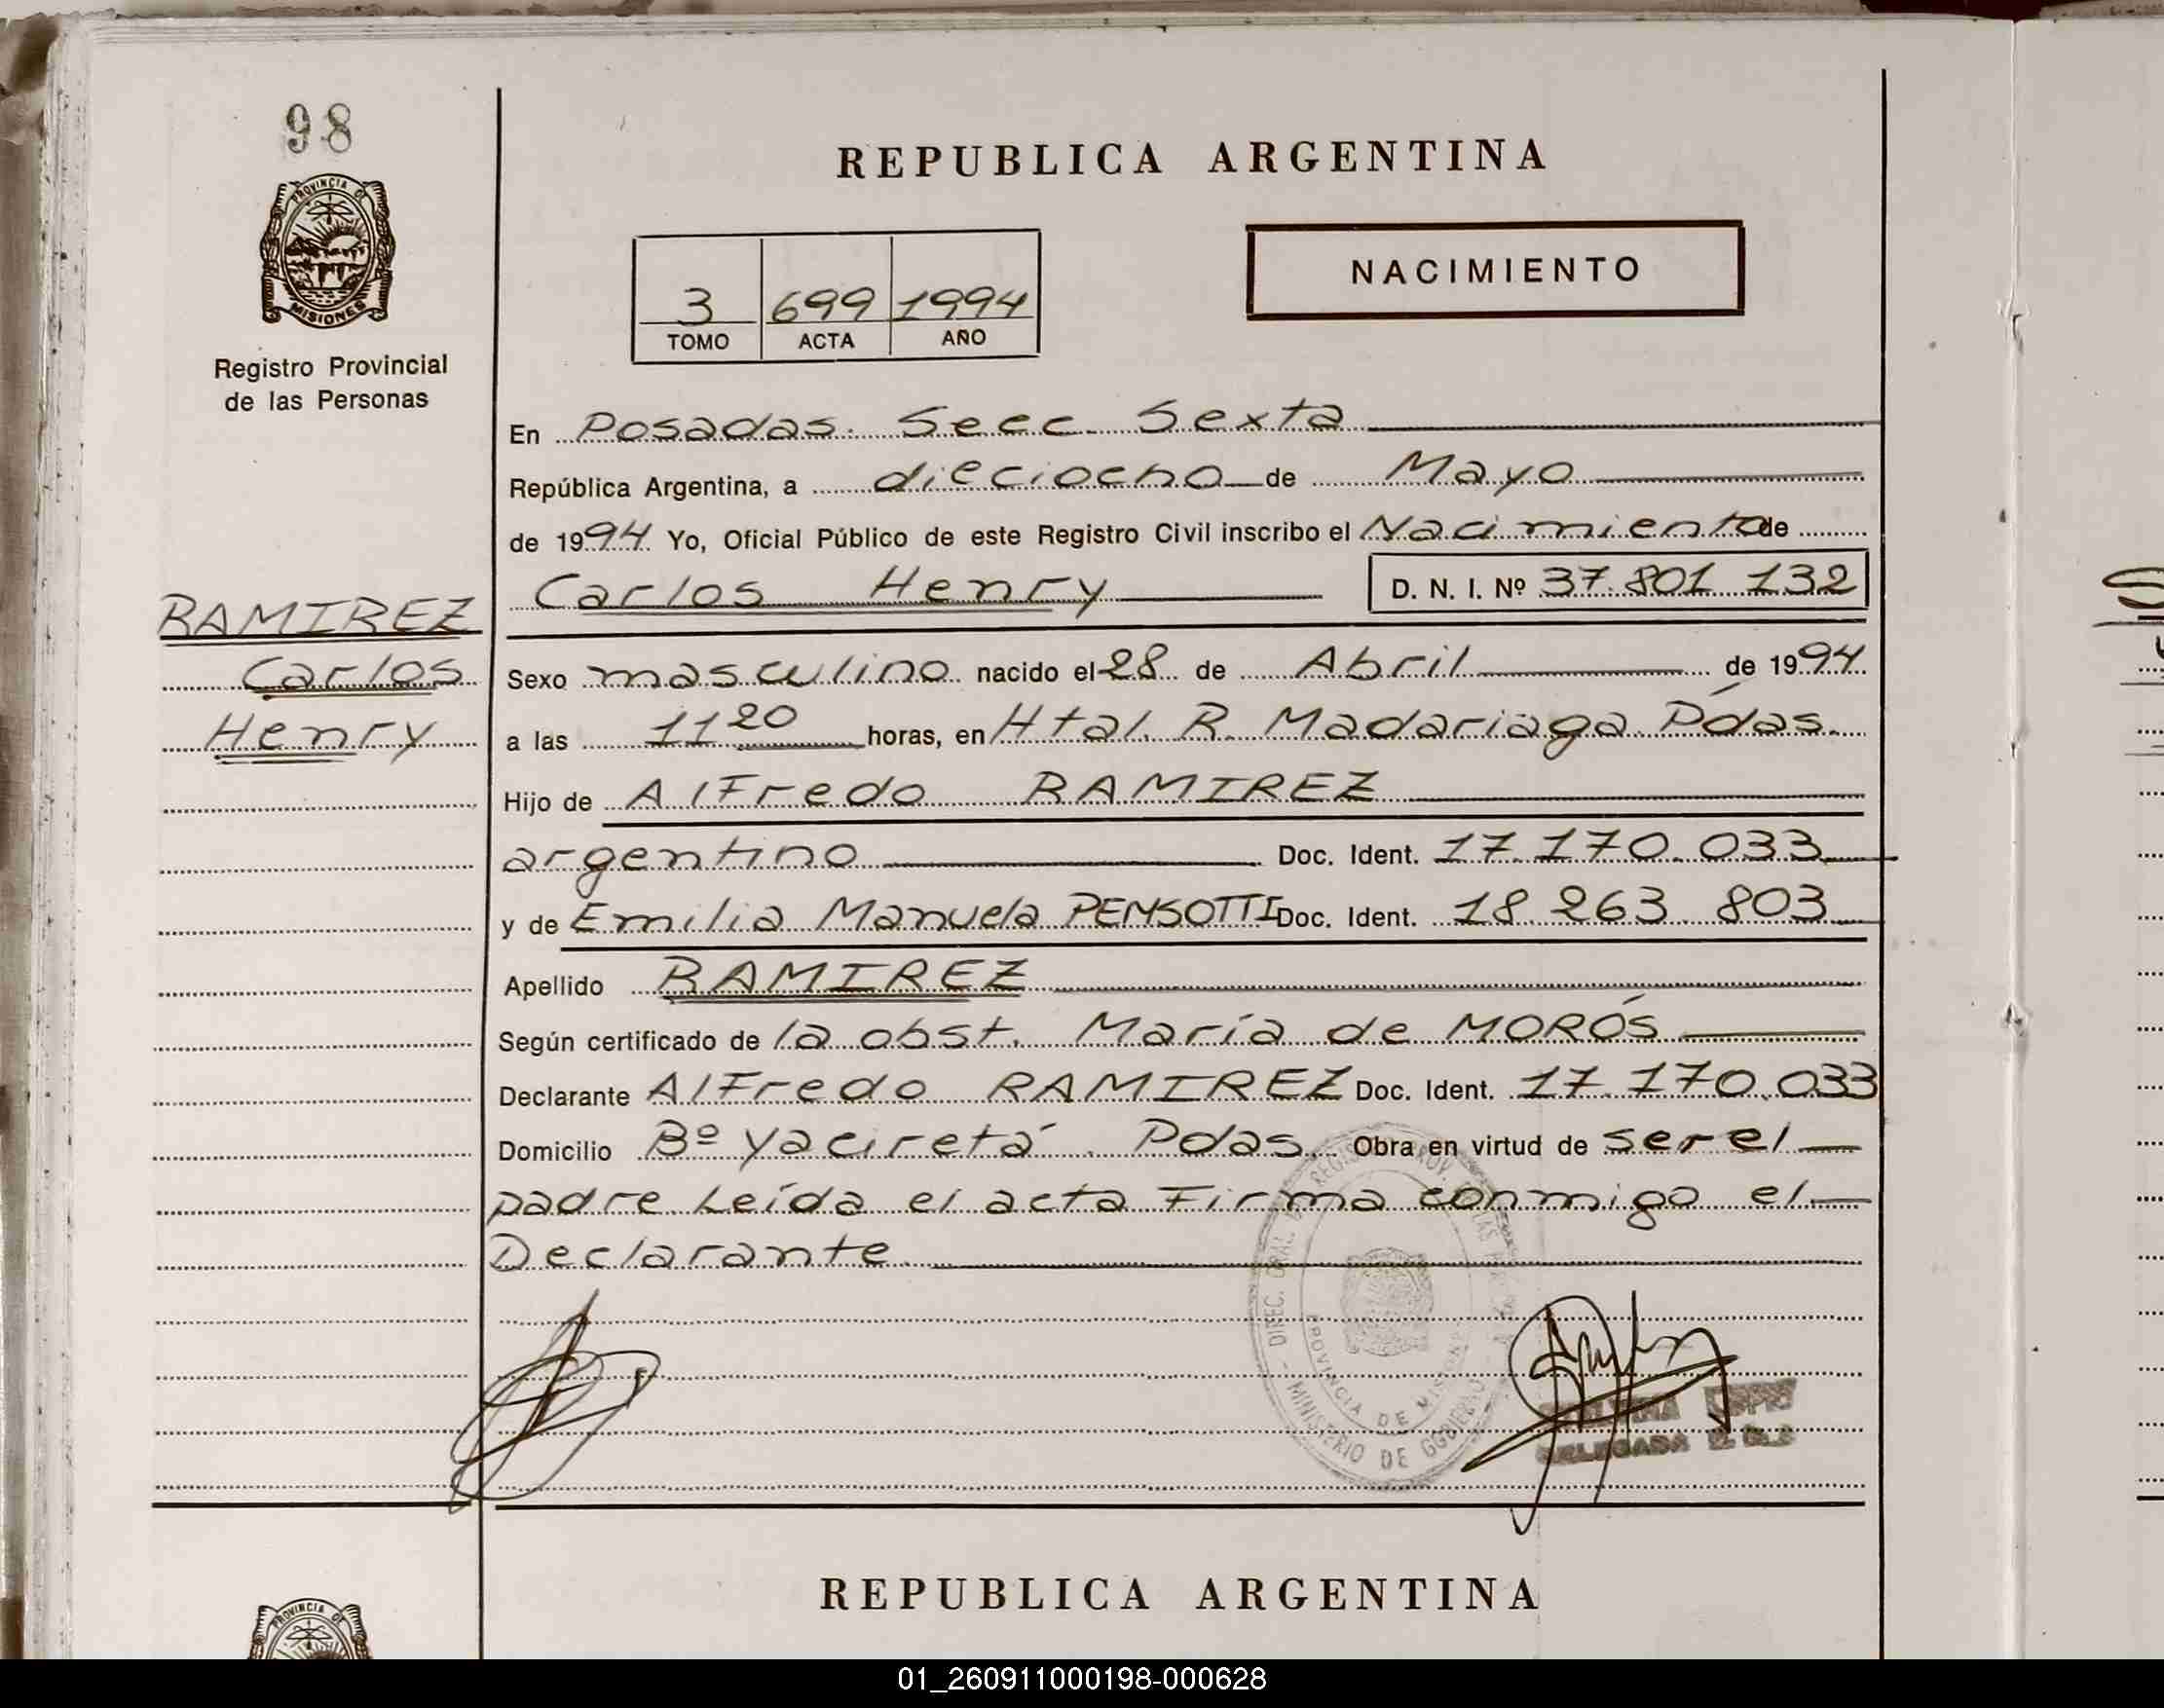 98
PROVINCIA DE
MISIONES
Registro Provincial
de las Personas
REPUBLICA ARGENTINA
3 699 1994
TOMO ACTA AÑO
NACIMIENTO
En Posadas. Secc. Sexta
República Argentina, a dieciocho de Mayo
de 1994 Yo, Oficial Público de este Registro Civil inscribo el Nacimiento de
Carlos Henry D. N. I. Nº 37.801.132
RAMIREZ
Carlos
Henry
Sexo masculino nacido el 28 de Abril de 1994
a las 11 20 horas, en Htal. R. Madariaga. Pdas.
Hijo de Alfredo RAMIREZ
argentino Doc. Ident. 17.170.033
y de Emilia Manuela PENSOTTI Doc. Ident. 18.263.803
Apellido RAMIREZ
Según certificado de la obst. María de MORÓS
Declarante Alfredo RAMIREZ Doc. Ident. 17.170.033
Domicilio Bº Yaciretá. Pdas. Obra en virtud de ser el
padre. Leída el acta Firma conmigo el
Declarante.
PROVINCIA DE MISIONES
MINISTERIO DE GOBIERNO
DELEGADA
REPUBLICA ARGENTINA
PROVINCIA DE
01_260911000198-000628